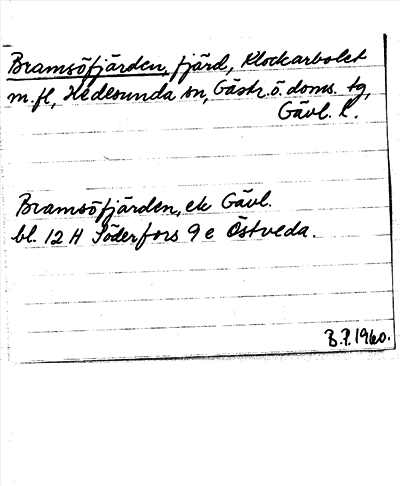 Bramsöfjärden, fjärd, Klockarbolet
m.fl, Hedesunda sn, Gästr. ö. doms. tg,
Gävl. l.
Bramsöfjärden, ek Gävl.
bl. 12 H Söderfors 9 e Östveda.
B.P. 1960.